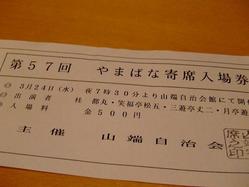 第57回 やまばな寄席入場券
◎ 3月24日(水) 夜7時30分より山端自治会館にて開
◎ 出演者 桂 都丸・笑福亭松五・三遊亭丈二・月亭遊
◎ 入場料 金500円
主催 山端自治会